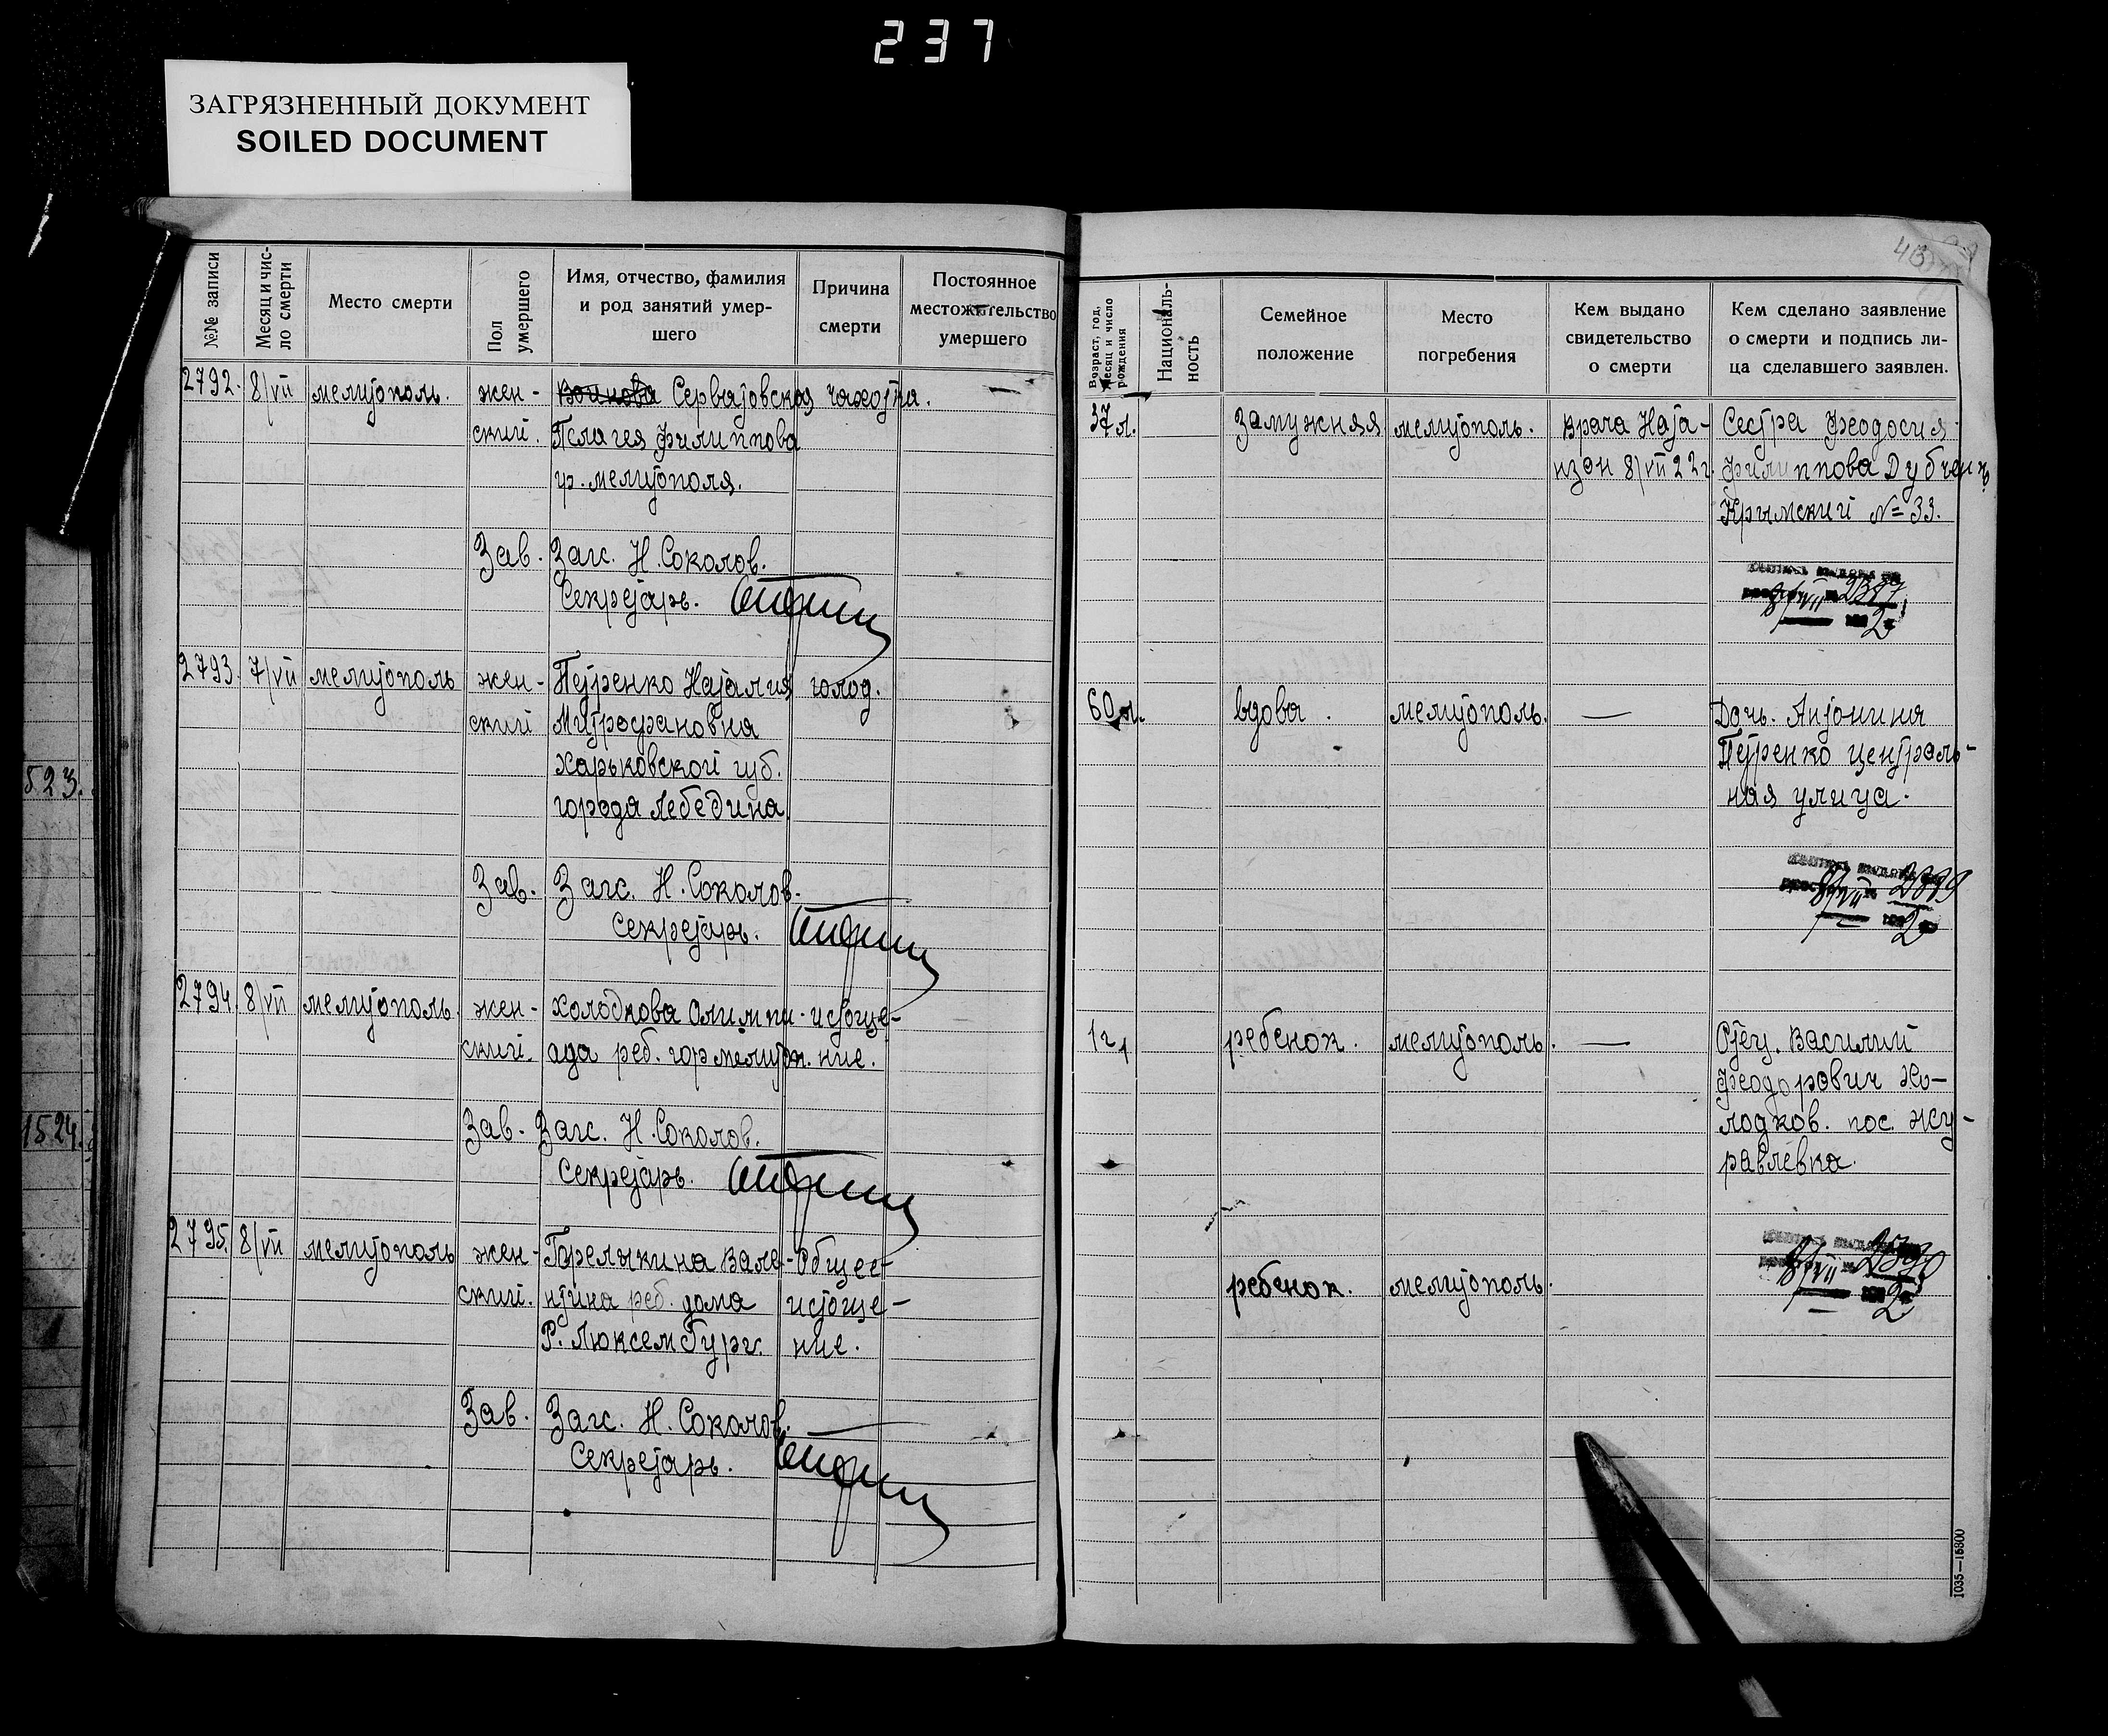 237
ЗАГРЯЗНЕННЫЙ ДОКУМЕНТ
SOILED DOCUMENT
№№ записи
Месяц и чис-
ло смерти
Место смерти
Пол
умершего
Имя, отчество, фамилия
и род занятий умер-
шего
Причина
смерти
Постоянное
местожительство
умершего
2792. 8/VII мелитополь. жен- Серватовская чахотка. —
ский. Пелагея Филиппова
гр. мелитополя.
Зав. Загс. Н. Соколов.
Секретарь.
2793. 7/VII мелитополь жен- Петренко Наталия голод.
ский Митрофановна
харьковской губ.
города Лебедина
Зав. Загс. Н. Соколов.
Секретарь.
2794. 8/VII мелитополь. жен- Холодкова Олимпи- истоще-
ский. ада реб. гор мелитоп. ние.
Зав. Загс. Н. Соколов.
Секретарь.
2795. 8/VII мелитополь жен- Горелыкина Вале- Общее
ский. нтина реб. дома истоще-
Р. Люксембург. ние.
Зав. Загс. Н. Соколов.
Секретарь.
523.
1524.
Возраст, год,
месяц и число
рождения
Националь-
ность
Семейное
положение
Место
погребения
Кем выдано
свидетельство
о смерти
Кем сделано заявление
о смерти и подпись ли-
ца сделавшего заявлен.
37 л. Замужняя мелитополь. Врача Ната- Сестра Феодосия
нзон 8/VII 22г. Филиппова Дубченко
Крымский № 33.
8/VII 2387
2
60 л. вдова. мелитополь. — Дочь. Антонина
Петренко централь-
ная улица.
8/VII 2389
2
1 г. ребенок. мелитополь. — Отец. Василий
Феодорович Хо-
лодков. пос. Жу-
равлевка.
8/VII 2390
2
ребенок. мелитополь.
1035—15800